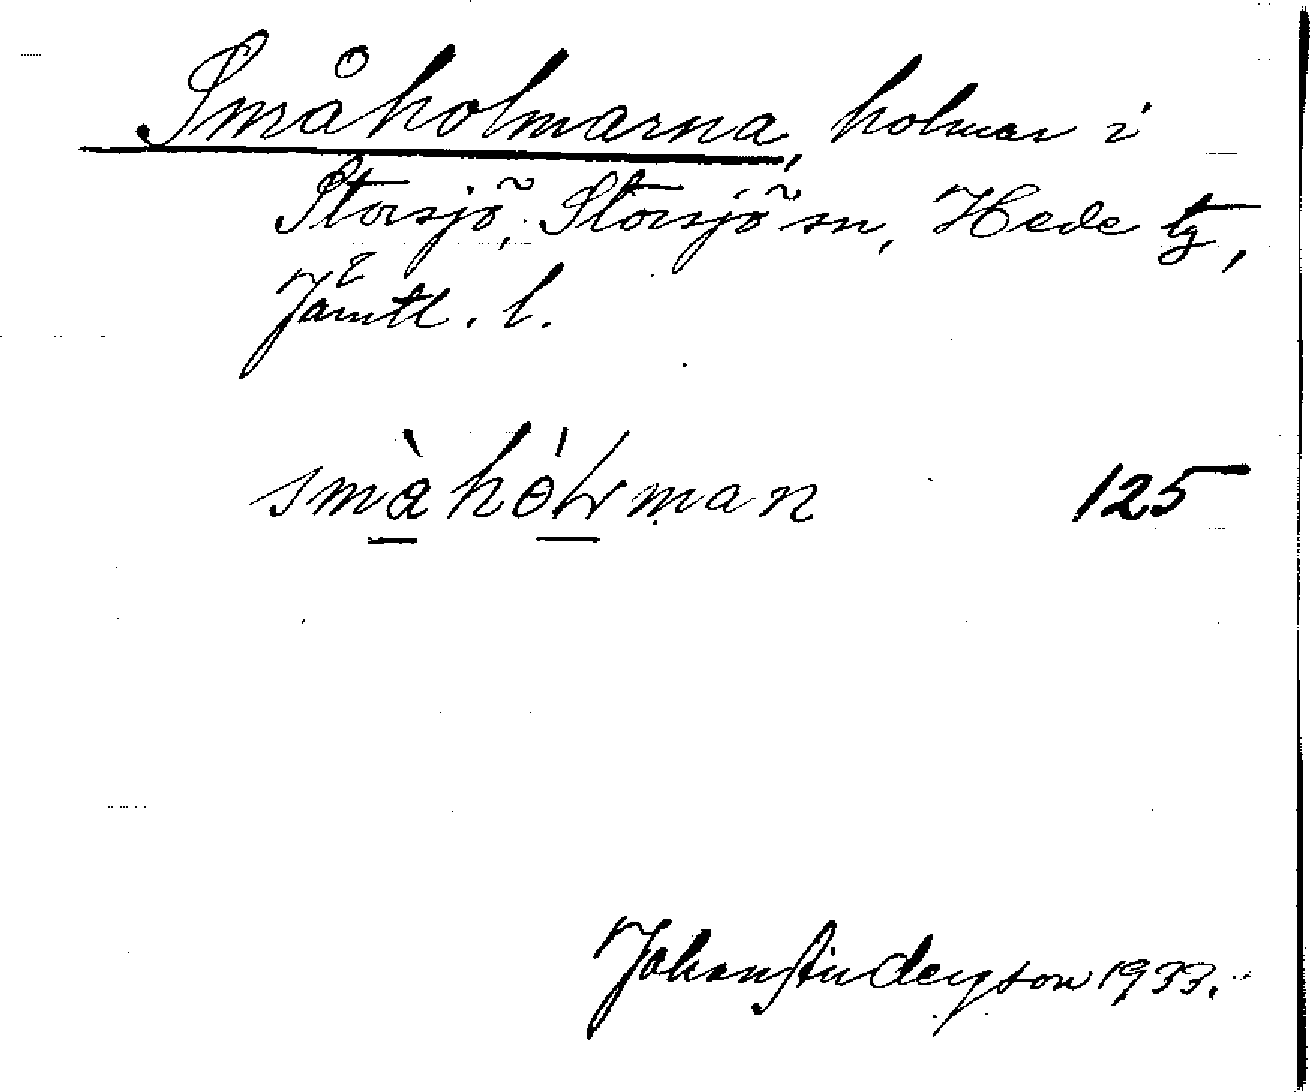 Småholmarna, holmar i
Storsjö, Storsjö sn, Hede tg,
Jämtl. l.
smàhólrman 125
Johan Lindersson 1933.